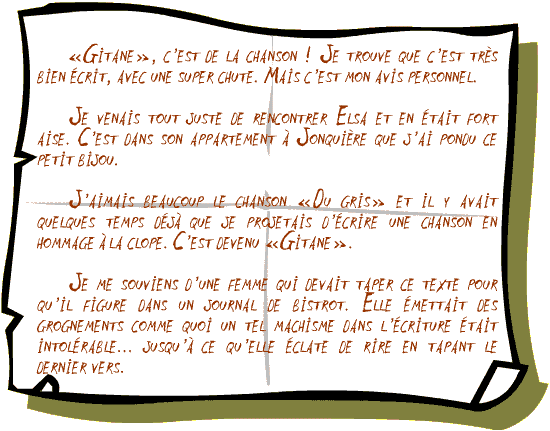 «Gitane», c'est de la chanson ! Je trouve que c'est très
bien écrit, avec une super chute. Mais c'est mon avis personnel.
Je venais tout juste de rencontrer Elsa et en était fort
aise. C'est dans son appartement à Jonquière que j'ai pondu ce
petit bijou.
J'aimais beaucoup le chanson «Du gris» et il y avait
quelques temps déjà que je projetais d'écrire une chanson en
hommage à la clope. C'est devenu «Gitane».
Je me souviens d'une femme qui devait taper ce texte pour
qu'il figure dans un journal de bistrot. Elle émettait des
grognements comme quoi un tel machisme dans l'écriture était
intolérable... jusqu'à ce qu'elle éclate de rire en tapant le
dernier vers.